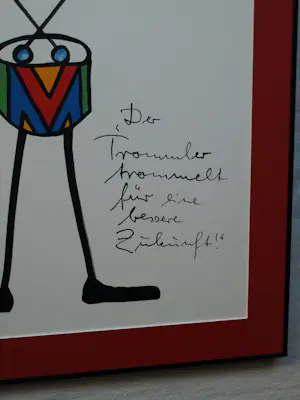 „Der
Trommler
trommelt
für eine
bessere
Zukunft!“